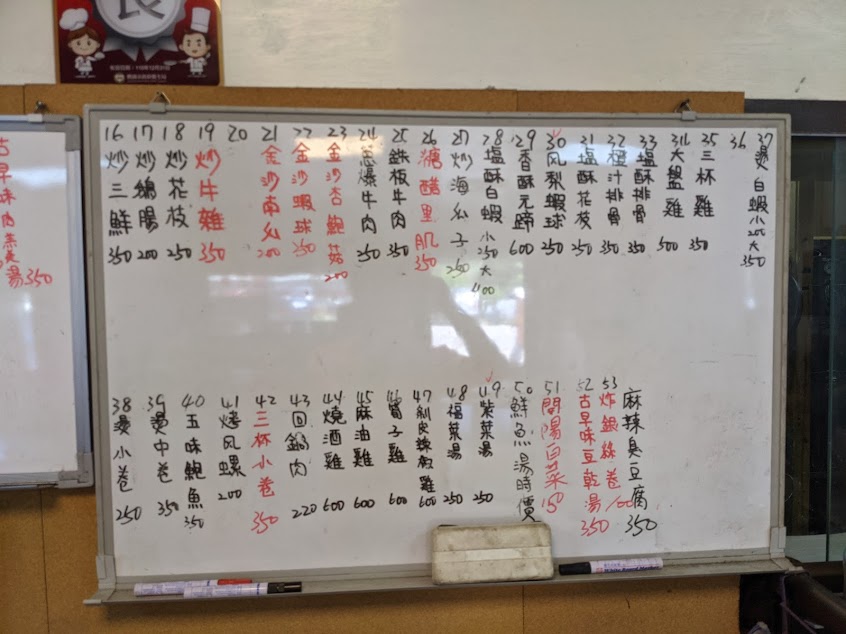 16 炒三鮮 350
17 炒鵝腸 200
18 炒花枝 250
19 炒牛雜 350
20
21 金沙南瓜 200
22 金沙蝦球 250
23 金沙杏鮑菇 200
24 蔥爆牛肉 250
25 鉄板牛肉 350
26 糖醋里肌 350
27 炒海瓜子 250
28 塩酥白蝦 小250 大400
29 香酥元蹄 600
30 风梨蝦球 250
31 塩酥花枝 250
32 橙汁排骨 350
33 塩酥排骨 350
34 大盤雞 500
35 三杯雞 350
36
37 燙白蝦 小200 大350
38 燙小卷 250
39 燙中卷 350
40 五味鮑魚 350
41 烤风螺 200
42 三杯小卷 350
43 回鍋肉 220
44 燒酒雞 600
45 麻油雞 600
46 筍子雞 600
47 剝皮辣椒雞 600
48 福菜湯 250
49 紫菜湯 250
50 鮮魚湯 時價
51 開陽白菜 150
52 古早味豆乾湯 350
53 炸銀絲卷 100
麻辣臭豆腐 350
古早味肉羹湯 350